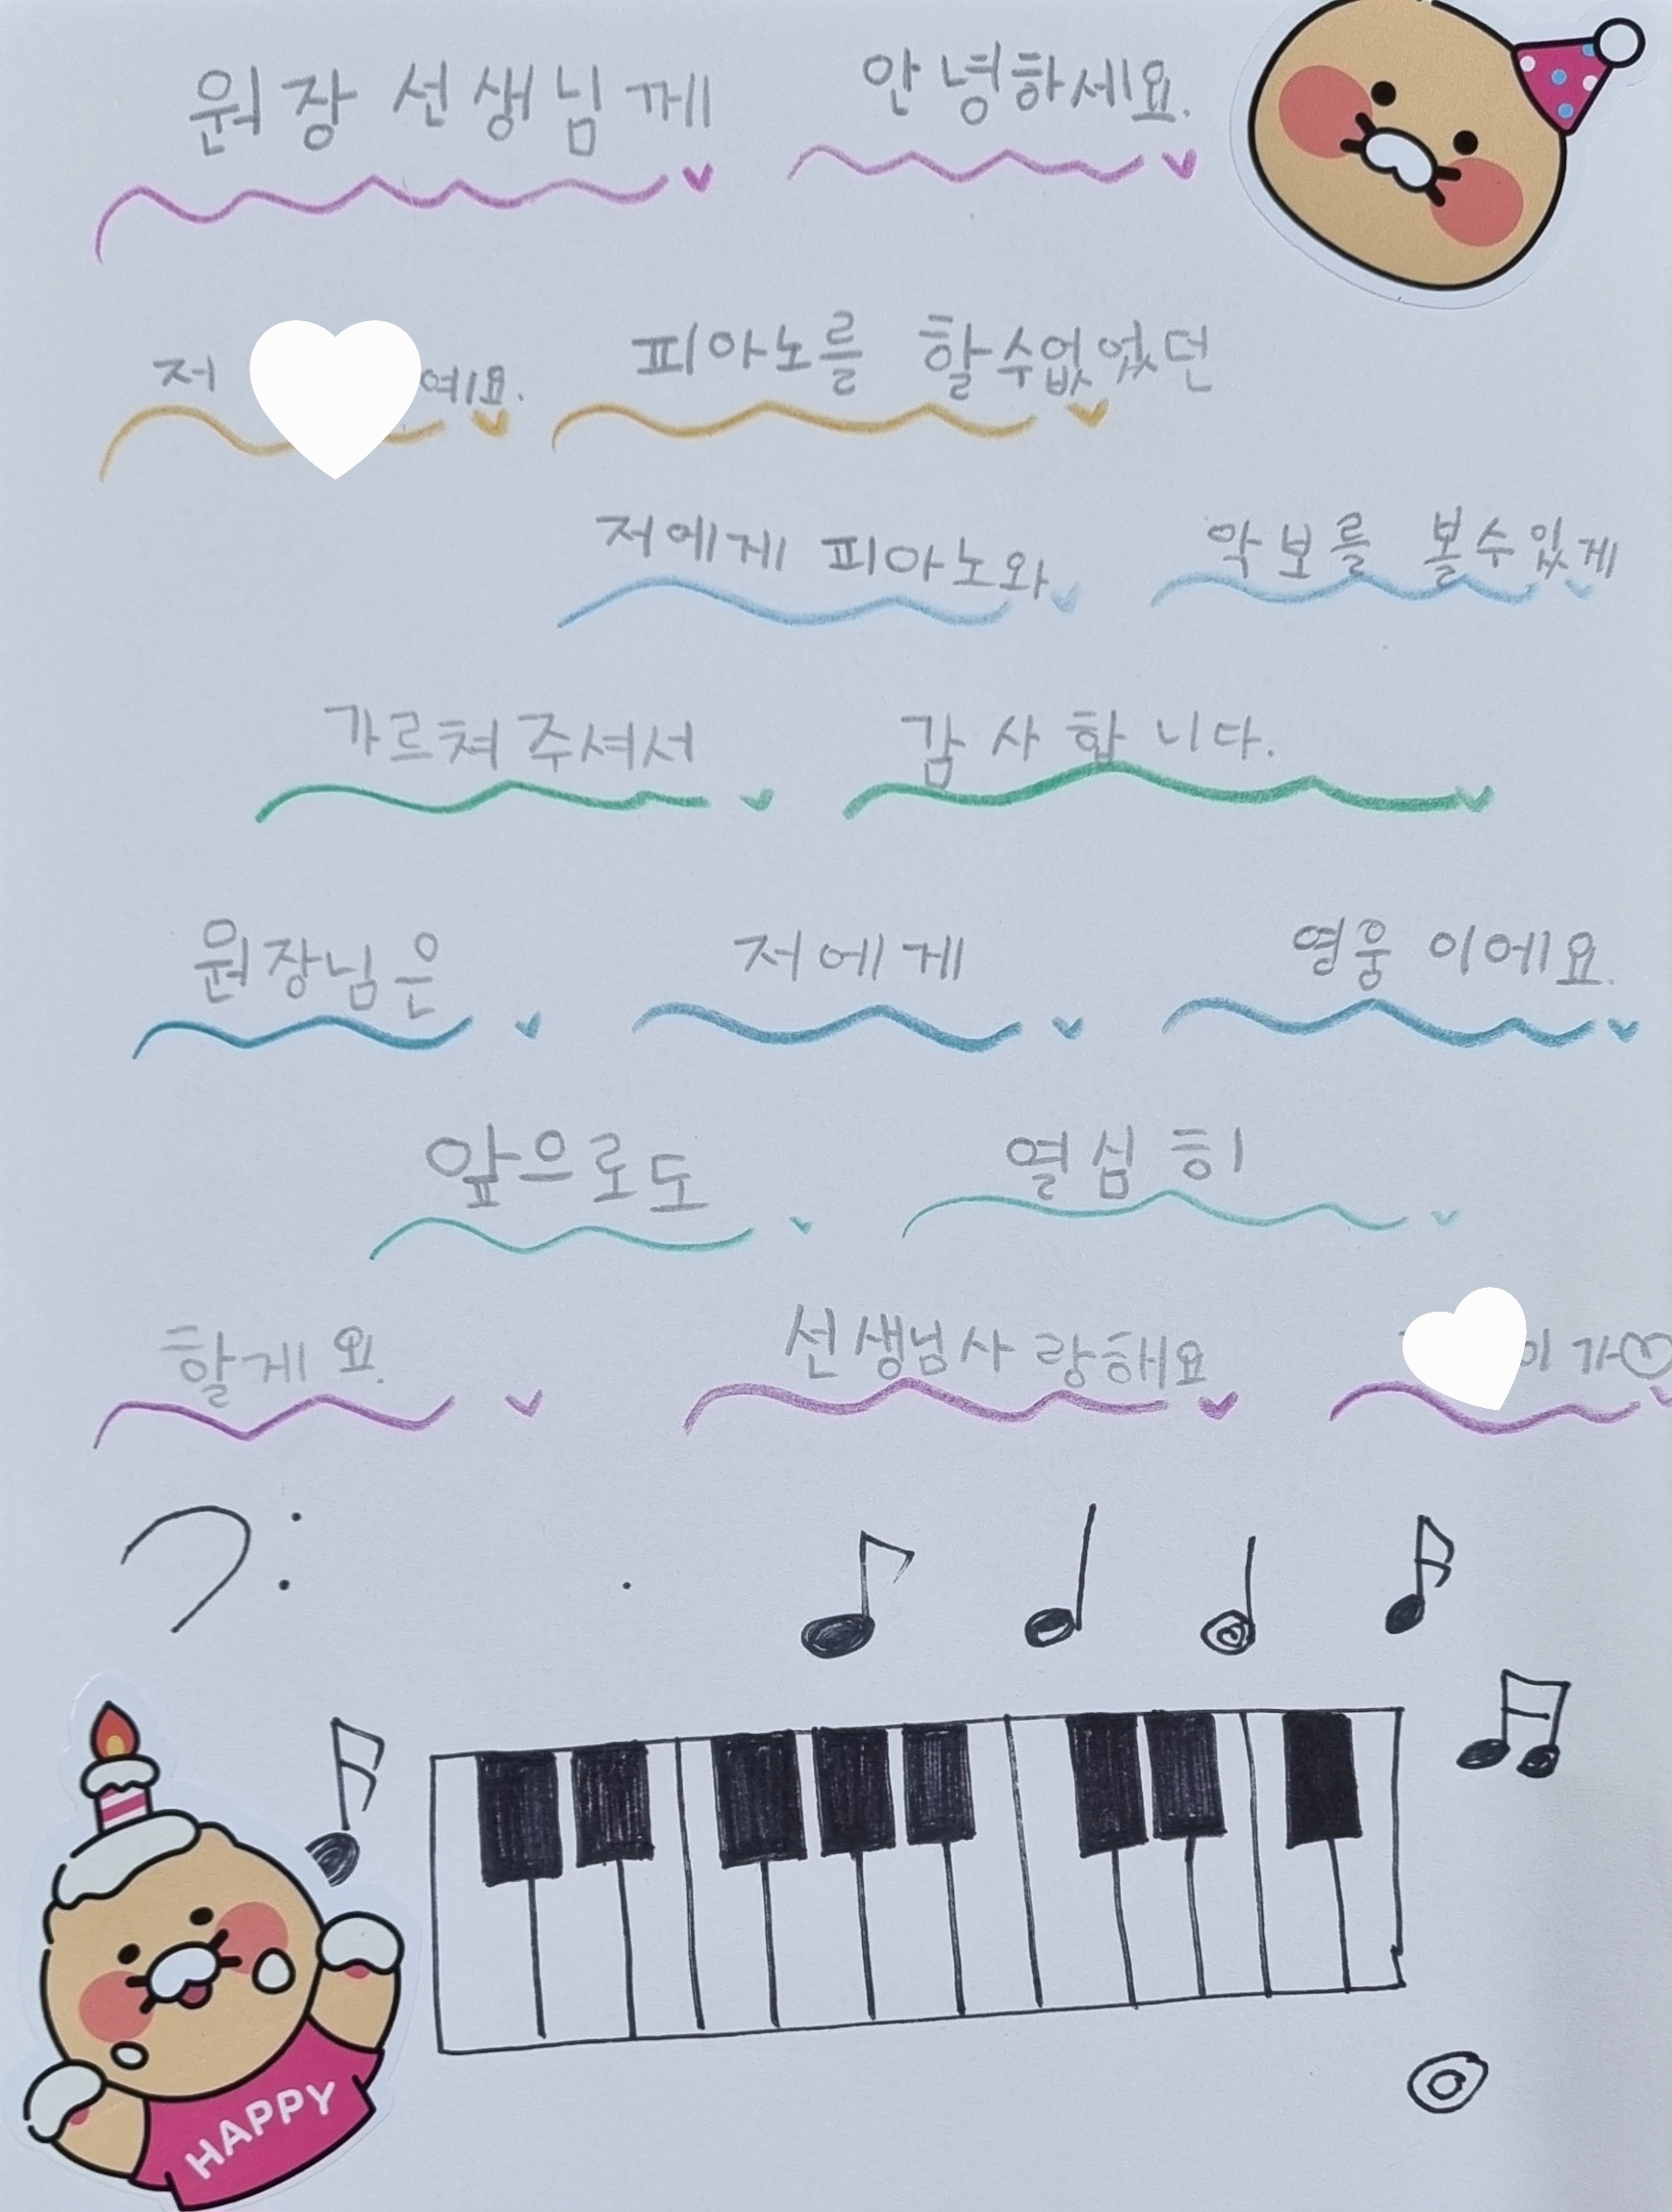 원장 선생님께 안녕하세요.
저 예요. 피아노를 할수없었던
저에게 피아노와 악보를 볼수있게
가르쳐주셔서 감사합니다.
원장님은 저에게 영웅이에요.
앞으로도 열심히
할게요. 선생님사랑해요 이가♡
HAPPY